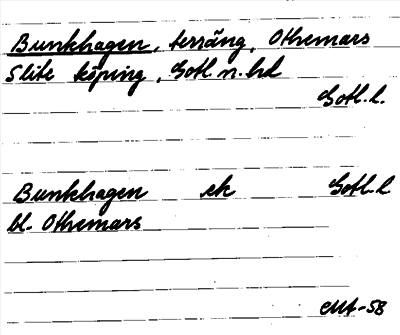 Bunkhagen, terräng, Othemars
Slite köping, Gotl. n. hd
Gotl. l.
Bunkhagen ek Gotl. l
bl. Othemars